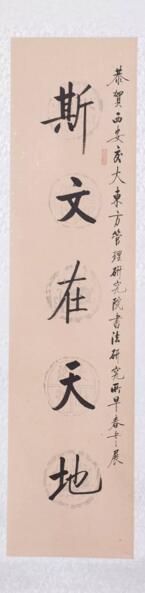 恭賀西安交大東方管理研究院書法研究所早春书展
斯文在天地